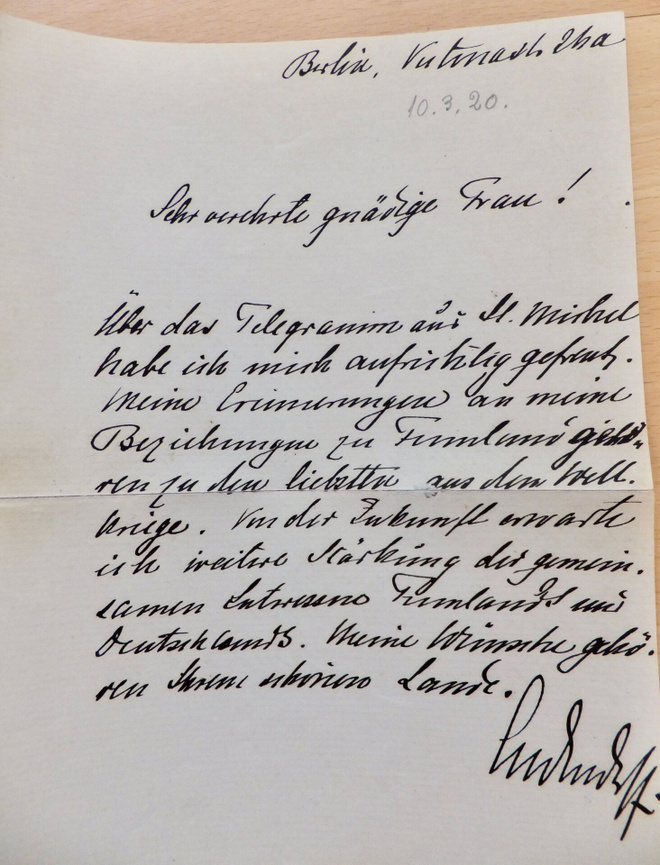 Berlin, Viktoriastr. 24a
10.3.20.
Sehr verehrte gnädige Frau!
Über das Telegramm aus St. Michel
habe ich mich aufrichtig gefreut.
Meine Erinnerungen an meine
Beziehungen zu Finnland gehö-
ren zu den liebsten aus dem Welt-
kriege. Von der Zukunft erwarte
ich weitere Stärkung der gemein-
samen Interessen Finnlands und
Deutschlands. Meine Wünsche gehö-
ren Ihrem schönen Lande.
Ludendorff